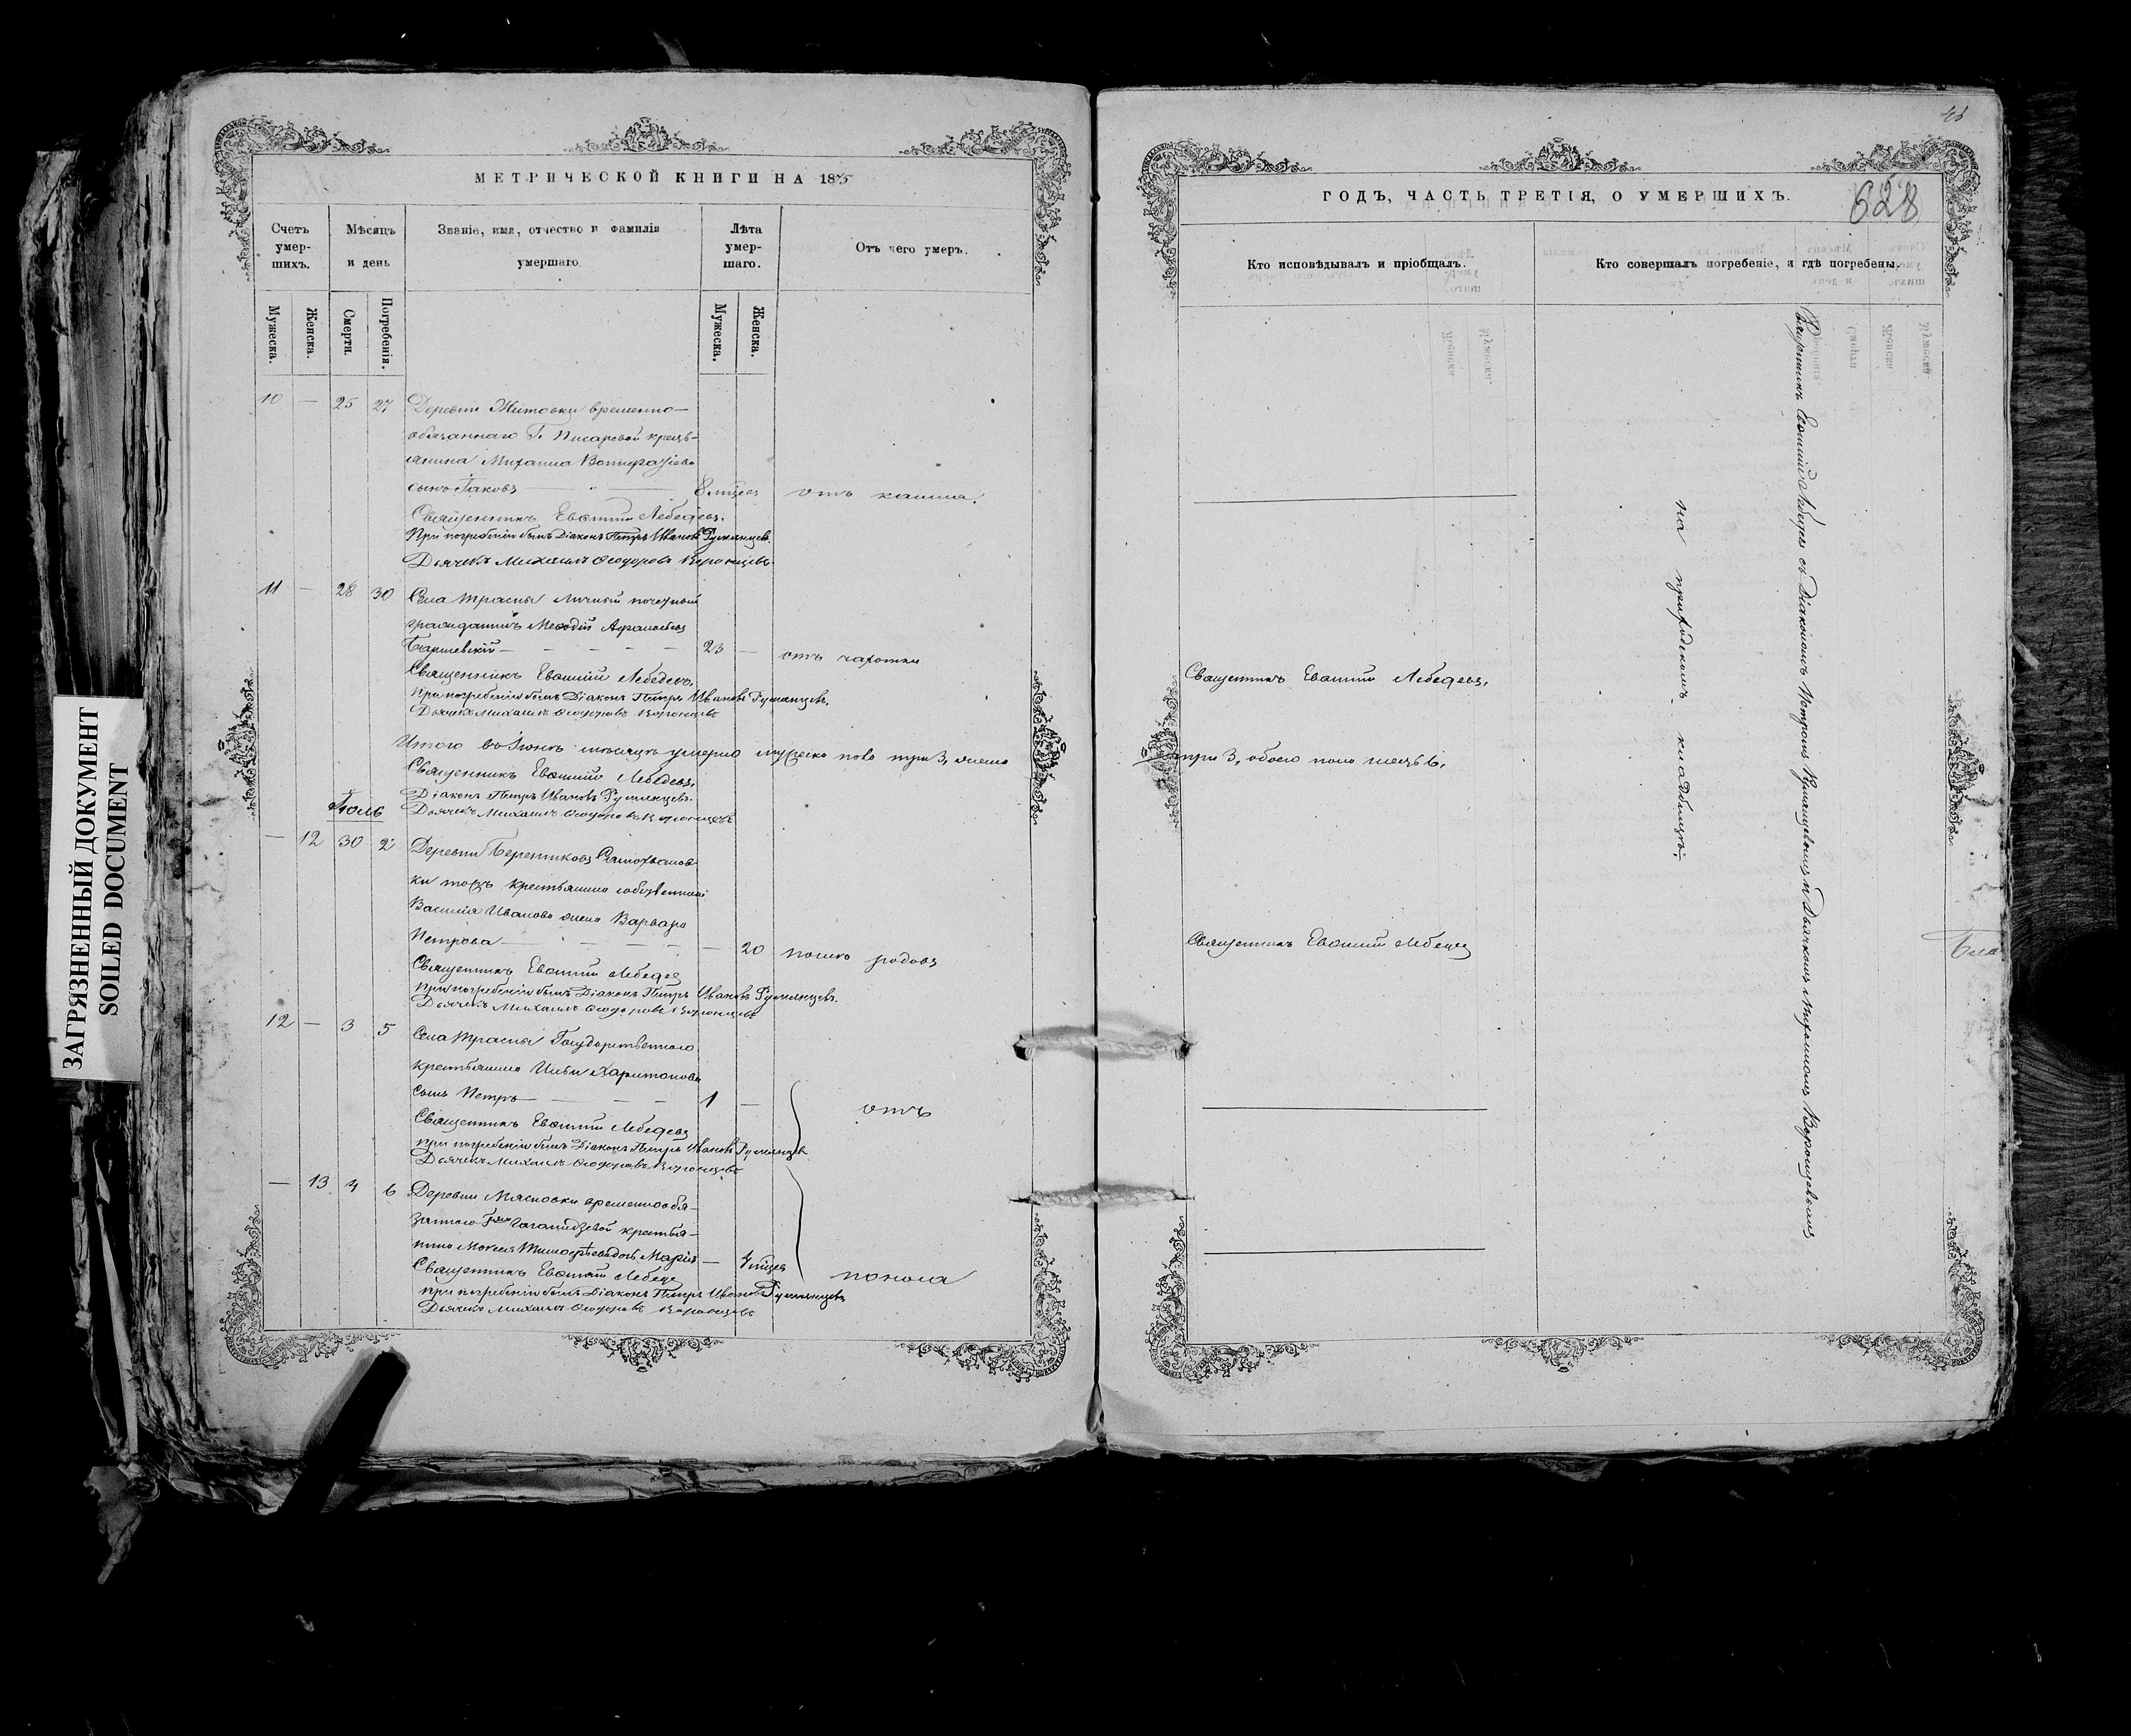 МЕТРИЧЕСКОЙ КНИГИ НА 1875
Счетъ умер-шихъ.
Мѣсяцъ и день
Званіе, имя, отчество и фамилія умершаго.
Лѣта умер-шаго.
Отъ чего умеръ.
Мужеска.
Женска.
Смерти.
Погребенія.
Мужеска.
Женска.
10 — 25 27 Деревни временно-
обязаннаго Г. Писаревой кресть-
янина Михаила
сынъ Іаковъ 8 мѣсец отъ кашля.
Священникъ Евѳимій Лебедевъ.
При погребеніи былъ Діаконъ Петръ Ивановъ Румянцевъ.
Дьячекъ Михаилъ Ѳеодоровъ Воронцовъ.
11 — 28 30 Села Трасны личный почетный
гражданинъ Меѳодій
23 — отъ чахотки
Священникъ Евѳимій Лебедевъ.
При погребеніи былъ Діаконъ Петръ Ивановъ Румянцевъ.
Дьячекъ Михаилъ Ѳеодоровъ Воронцовъ
Итого въ Іюнѣ мѣсяцѣ умерло мужеска пола три 3, женска
Священникъ Евѳимій Лебедевъ.
Діаконъ Петръ Ивановъ Румянцевъ.
Іюль
Дьячекъ Михаилъ Ѳеодоровъ Воронцовъ
— 12 30 2 Деревни
ки тожъ крестьянина собственника
Василія Иванова жена Варвара
Петрова — 20 послѣ родовъ
Священникъ Евѳимій Лебедев
При погребеніи былъ Діаконъ Петръ Ивановъ Румянцевъ.
Дьячекъ Михаилъ Ѳеодоровъ Воронцовъ
12 — 3 5 Села Трасны Государственнаго
крестьянина Ильи Харитонова
сынъ Петръ 1 — отъ
Священникъ Евѳимій Лебедевъ
при погребеніи былъ Діаконъ Петръ Ивановъ Румянцев
Дьячекъ Михаилъ Ѳеодоровъ Воронцовъ
— 13 4 6 Деревни Мясновки временнообя-
заннаго крестья-
нина Моисея дочь Марія — 4 мѣсец поноса
Священникъ Евѳимій Лебеде
при погребеніи былъ Діаконъ Петръ Ивановъ Румянцевъ
Дьячекъ Михаилъ Ѳеодоровъ Воронцовъ
ГОДЪ, ЧАСТЬ ТРЕТІЯ, О УМЕРШИХЪ.
628
Кто исповѣдывалъ и пріобщалъ.
Кто совершалъ погребеніе, и гдѣ погребены.
Священникъ Евѳимій Лебедевъ.
три 3, обоего пола шесть 6.
Священникъ Евѳимій Лебедев
на приходскомъ кладбищѣ.
Священникъ Евѳимій Лебедев съ Діакономъ Петромъ Румянцевымъ и Дьячкомъ Михаиломъ Воронцовымъ
ЗАГРЯЗНЕННЫЙ ДОКУМЕНТ
SOILED DOCUMENT